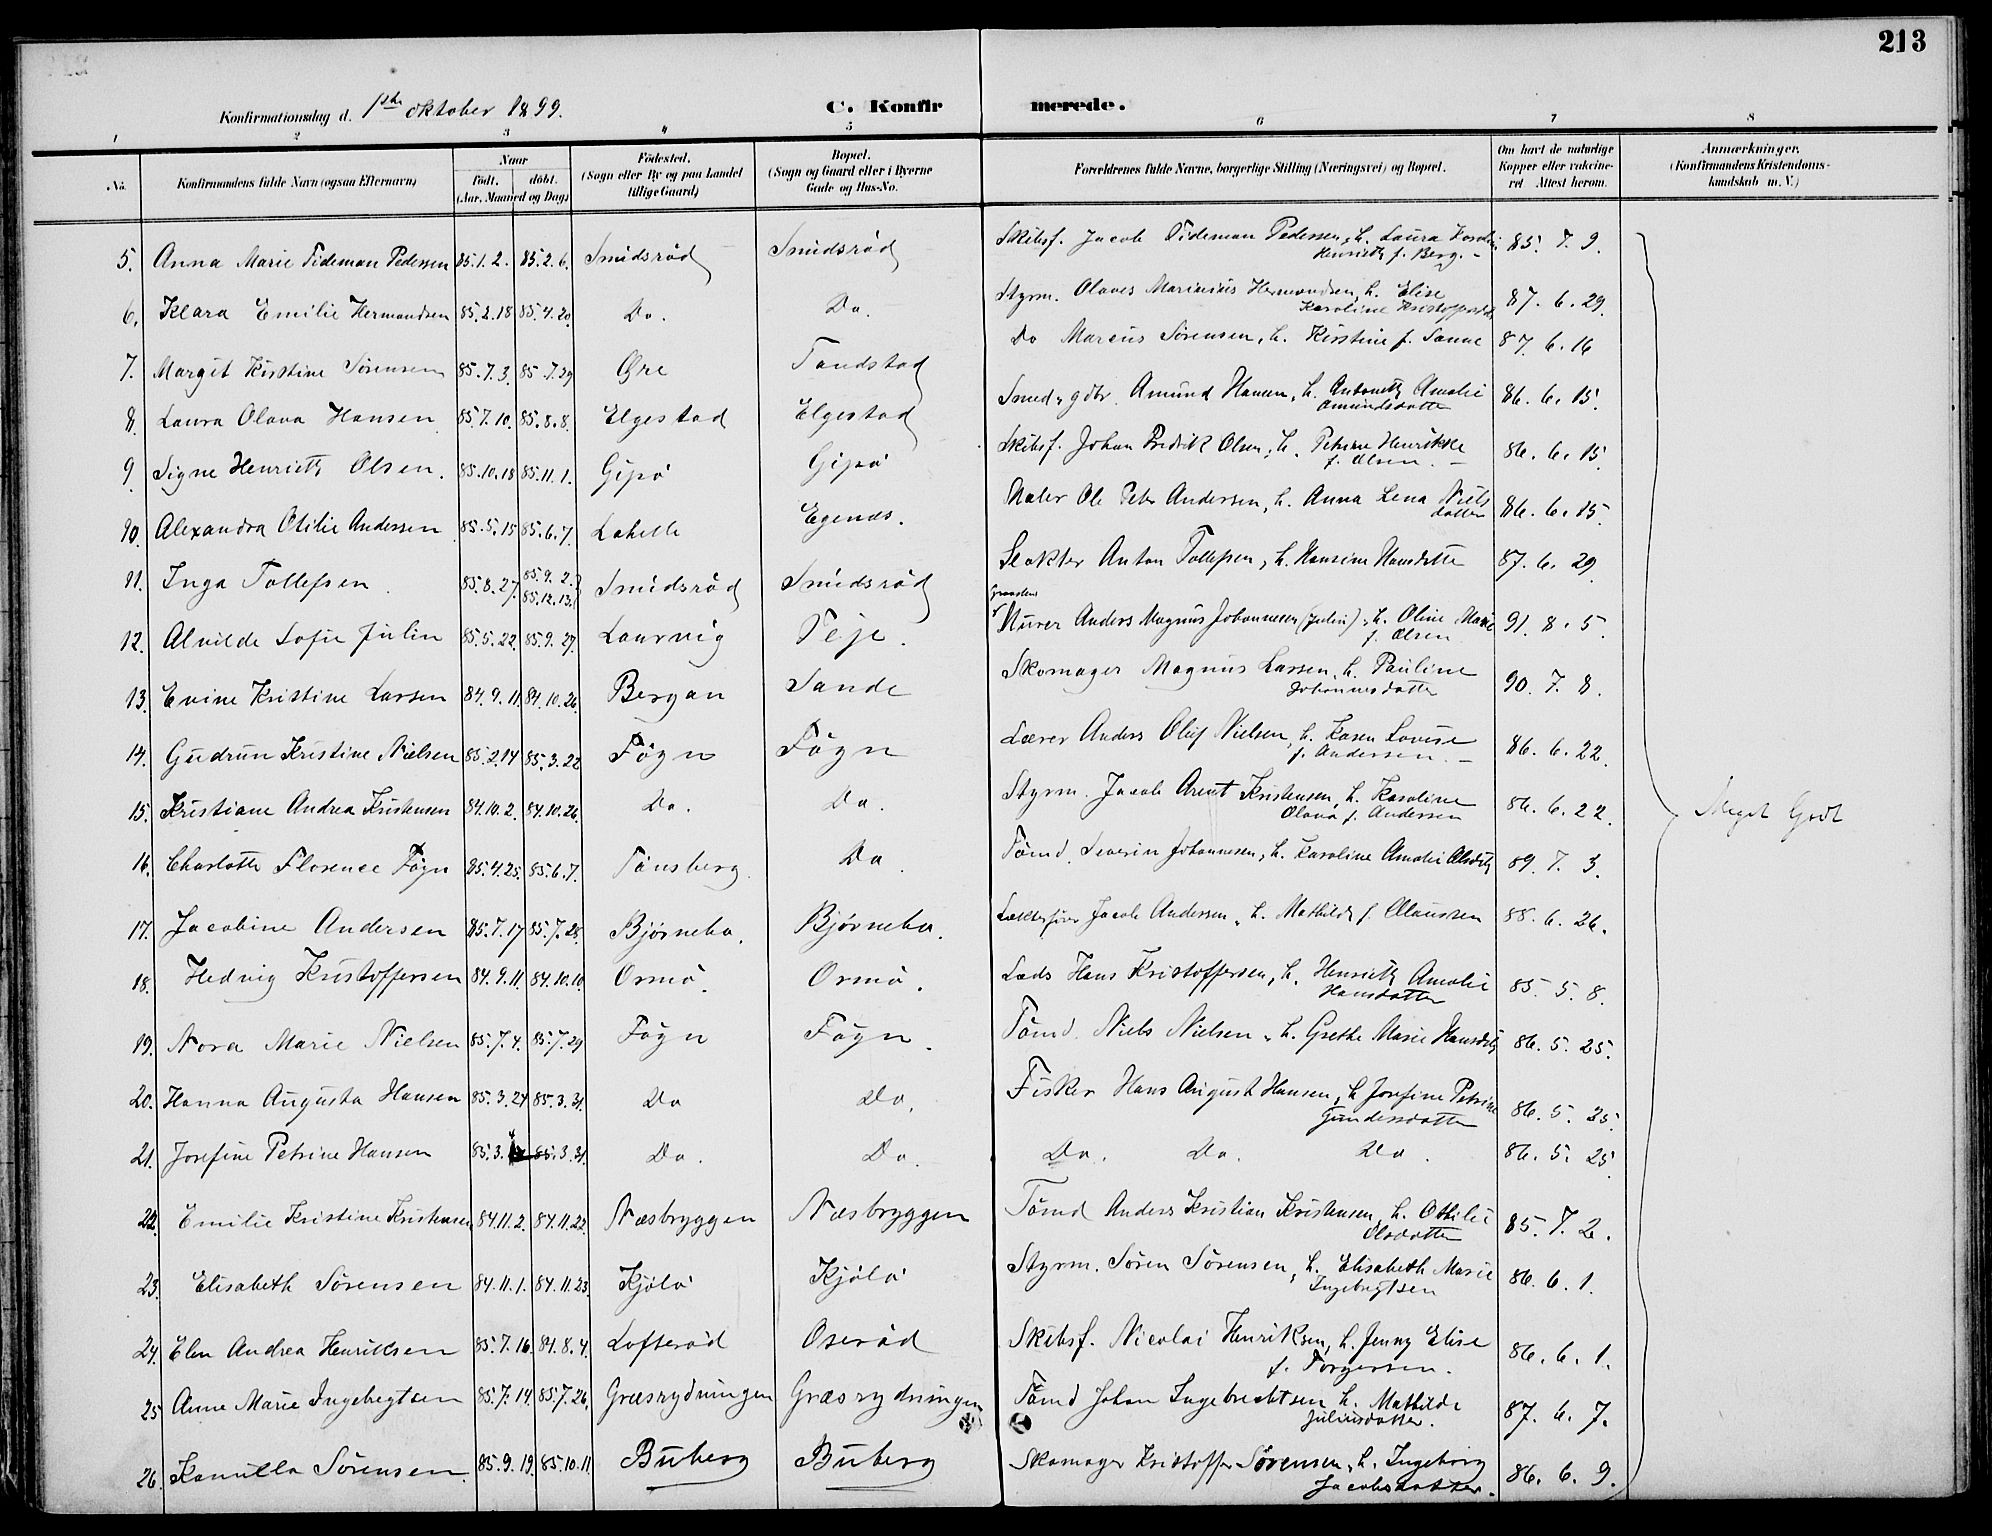 213
Konfirmationsdag d. 1ste oktober 1899.
C. Konfirmerede.
1 2 3 4 5 6 7 8
No. Konfirmandens fulde Navn (ogsaa Efternavn) Naar födt, döbt. (Aar, Maaned og Dag) Födested. (Sogn eller By og paa Landet tillige Gaard) Bopæl. (Sogn og Gaard eller i Byerne Gade og Hus-No. Forældrenes fulde Navne, borgerlige Stilling (Næringsvei) og Bopæl. Om havt de naturlige Kopper eller vakcineret Attest herom. Anmærkninger. (Konfirmandens Kristendomskundskab m. V.)
5. Anna Marie Tideman Pedersen 85.1.2. 85.2.6. Smidsröd Smidsröd Skibsf. Jacob Tideman Pedersen, h. Laura Karoline Henriette f. Berg. 85. 7. 9.
6. Klara Emilie Hermandsen 85.2.18 85.4.20. Do. Do. Styrm. Olaves Marinius Hermandsen, h. Elise Karoline Kristoffersdtr 87. 6. 29.
7. Margit Kristine Sörensen 85.7.3. 85.7.29 Øre Tandstad Do Marius Sörensen, h. Kristine f. Sanne 87. 6. 16
8. Laura Olava Hansen 85.7.10. 85.8.8. Elgestad Elgestad Smed, gdbr. Amund Hansen, h. Antonette Amalie Amundsdatter 86. 6. 15.
9. Signe Henriette Olsen. 85.10.18 85.11.1. Gipö Gipö Skibsf. Johan Fredrik Olsen, h. Petrine Henrikke f. Olsen. 86. 6. 15.
10. Alexandra Otilie Andersen 85.5.15 85.6.7. Lahelle Egenæs. Maler Ole Peter Andersen, h. Anna Lena Nielsdatter 86. 6. 15.
11. Inga Tollefsen 85.8.27. 85.9.2. 85.12.13. Smidsröd Smidsröd Slakter Anton Tollefsen, h. Hansine Hansdatter 87. 6. 29.
12. Alvilde Sofie Julin 85.5.22. 85.9.27. Laurvig Teje. Murer Anders Magnus Johannesen (Julin), h. Oline Marie f. Olsen 91. 8. 5.
13. Evine Kristine Larsen 84.9.11. 84.10.26. Bergan Sande Skomager Magnus Larsen, h. Pauline Johannesdatter 90. 7. 8.
14. Gudrun Kristine Nielsen 85.2.14 85.3.22 Fögn Fögn Lærer Anders Oluf Nielsen, h. Karen Lovise f. Andersen. 86. 6. 22.
15. Kristiane Andrea Kristensen 84.10.2. 84.10.26. Do. Do. Styrm. Jacob Arent Kristensen, h. Karoline Olava f. Andersen 86. 6. 22.
16. Charlotte Florence Fögn 85.4.25. 85.6.7. Tönsberg. Do. Tömd. Severin Johannesen, h. Karoline Amalie Olsdtr 89. 7. 3.
17. Jacobine Andersen 85.7.17 85.7.28. Björnebo. Björnebo. Jacob Andersen, h. Mathilde f. Claussen 88. 6. 26.
18. Hedvig Kristoffersen 84.9.11. 84.10.10. Ormö. Ormö. Lods Hans Kristoffersen, h. Henriette Amalie Hansdatter 85. 5. 8.
19. Nora Marie Nielsen 85.7.4. 85.7.29 Fögn Fögn. Tömd. Niels Nielsen, h. Grethe Marie Hansdtr 86. 5. 25.
20. Hanna Augusta Hansen 85.3.24 85.3.31. Do Do. Fisker Hans August Hansen, h Josefine Petrine Gundersdatter 86. 5. 25.
21. Josefine Petrine Hansen 85.3. 85.3.31. Do. Do. Do. Do. Do. 86. 5. 25
22. Emilie Kristine Kristensen 84.11.2. 84.11.22. Næsbryggen Næsbryggen Tömd Anders Kristian Kristensen, h. Othilie Olsdatter 85. 7. 2.
23. Elisabeth Sörensen 84.11.1. 84.11.23. Kjölö Kjölö Styrm. Sören Sörensen, h. Elisabeth Marie Ingebrigtsen 86. 6. 1.
24. Elen Andrea Henriksen 85.7.16. 84.8.4. Lofteröd Oseröd Skibsf. Nicolai Henriksen, h. Jenny Elise f. Torgersen. 86. 6. 1.
25 Anne Marie Ingebrigtsen 85.7.14. 85.7.26. Græsrydningen Græsrydningen Tömd Johan Ingebrechtsen h. Mathilde Juliusdatter. 87. 6. 7.
26. Kamilla Sörensen. 85.9.19. 85.10.11. Buberg Buberg Skomager Kristoffer Sörensen, h. Ingeborg Jacobsdatter. 86. 6. 9.
Meget Godt